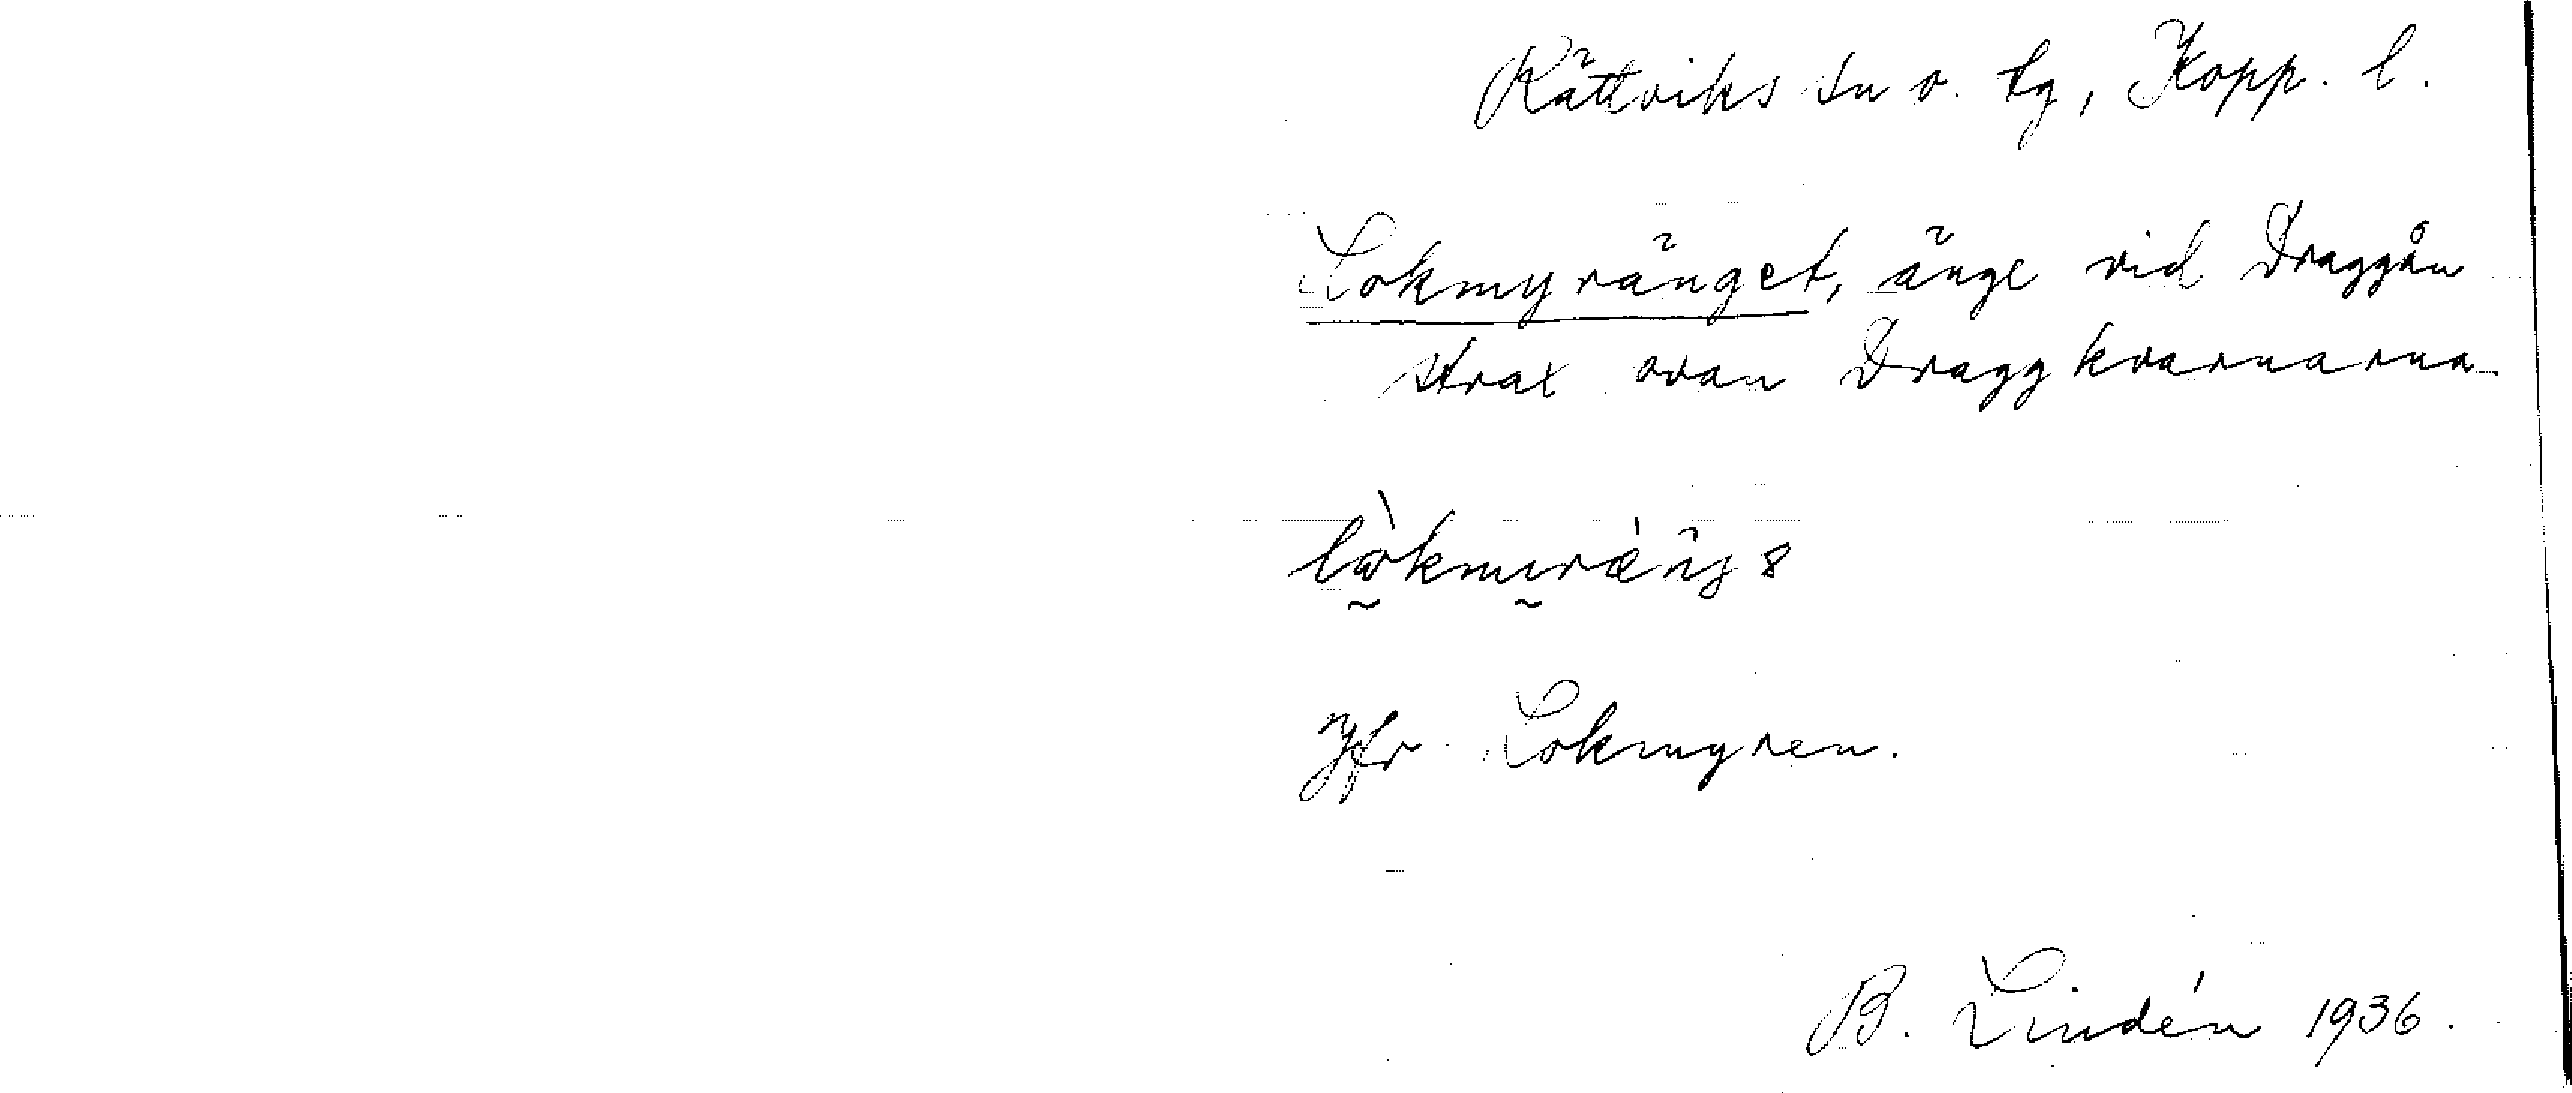 Rättviks sn o. tg, Kopp. l.
Lokmyränget, änge vid Draggån
strax ovan Draggkvarnarna
Jfr Lokmyren.
B. Lindén 1936.